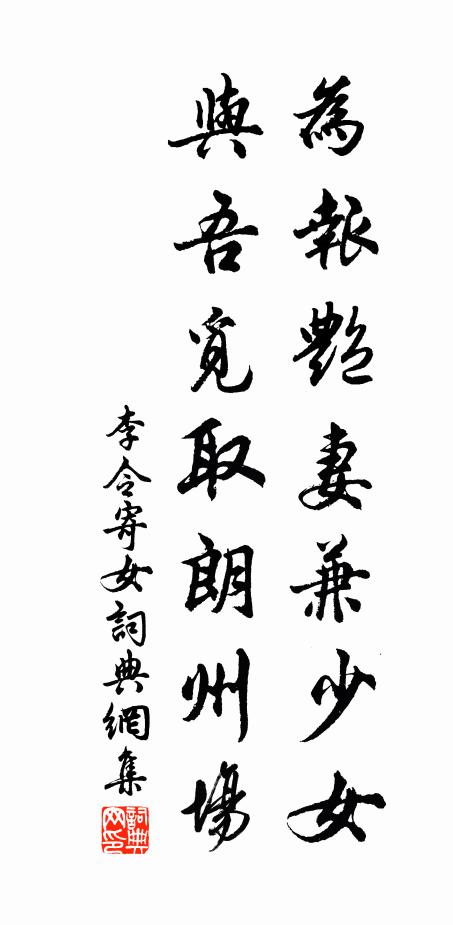 為報艷妻兼少女
與吾覓取朗州場
李令寄女詞典網集
詞典網印